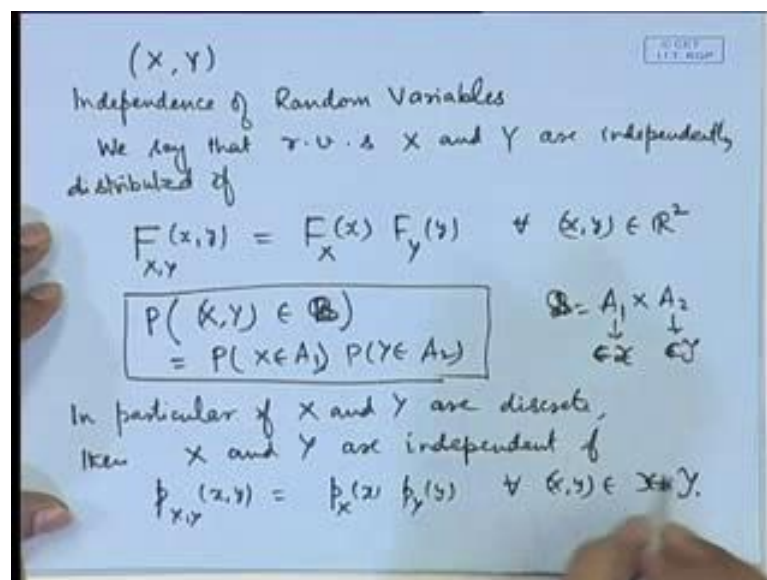 (X, Y)
© CET
I.I.T. KGP
Independence of Random Variables
We say that r.v.s X and Y are independently
distributed if
F_{X,Y}(x,y) = F_X(x) F_Y(y) ∀ (x,y) ∈ ℝ²
P((X,Y) ∈ B) B = A₁ × A₂
= P(X∈A₁) P(Y∈A₂) ↓ ↓
∈𝒳 ∈𝒴
In particular if X and Y are discrete,
then X and Y are independent if
p_{X,Y}(x,y) = p_X(x) p_Y(y) ∀ (x,y) ∈ 𝒳×𝒴.